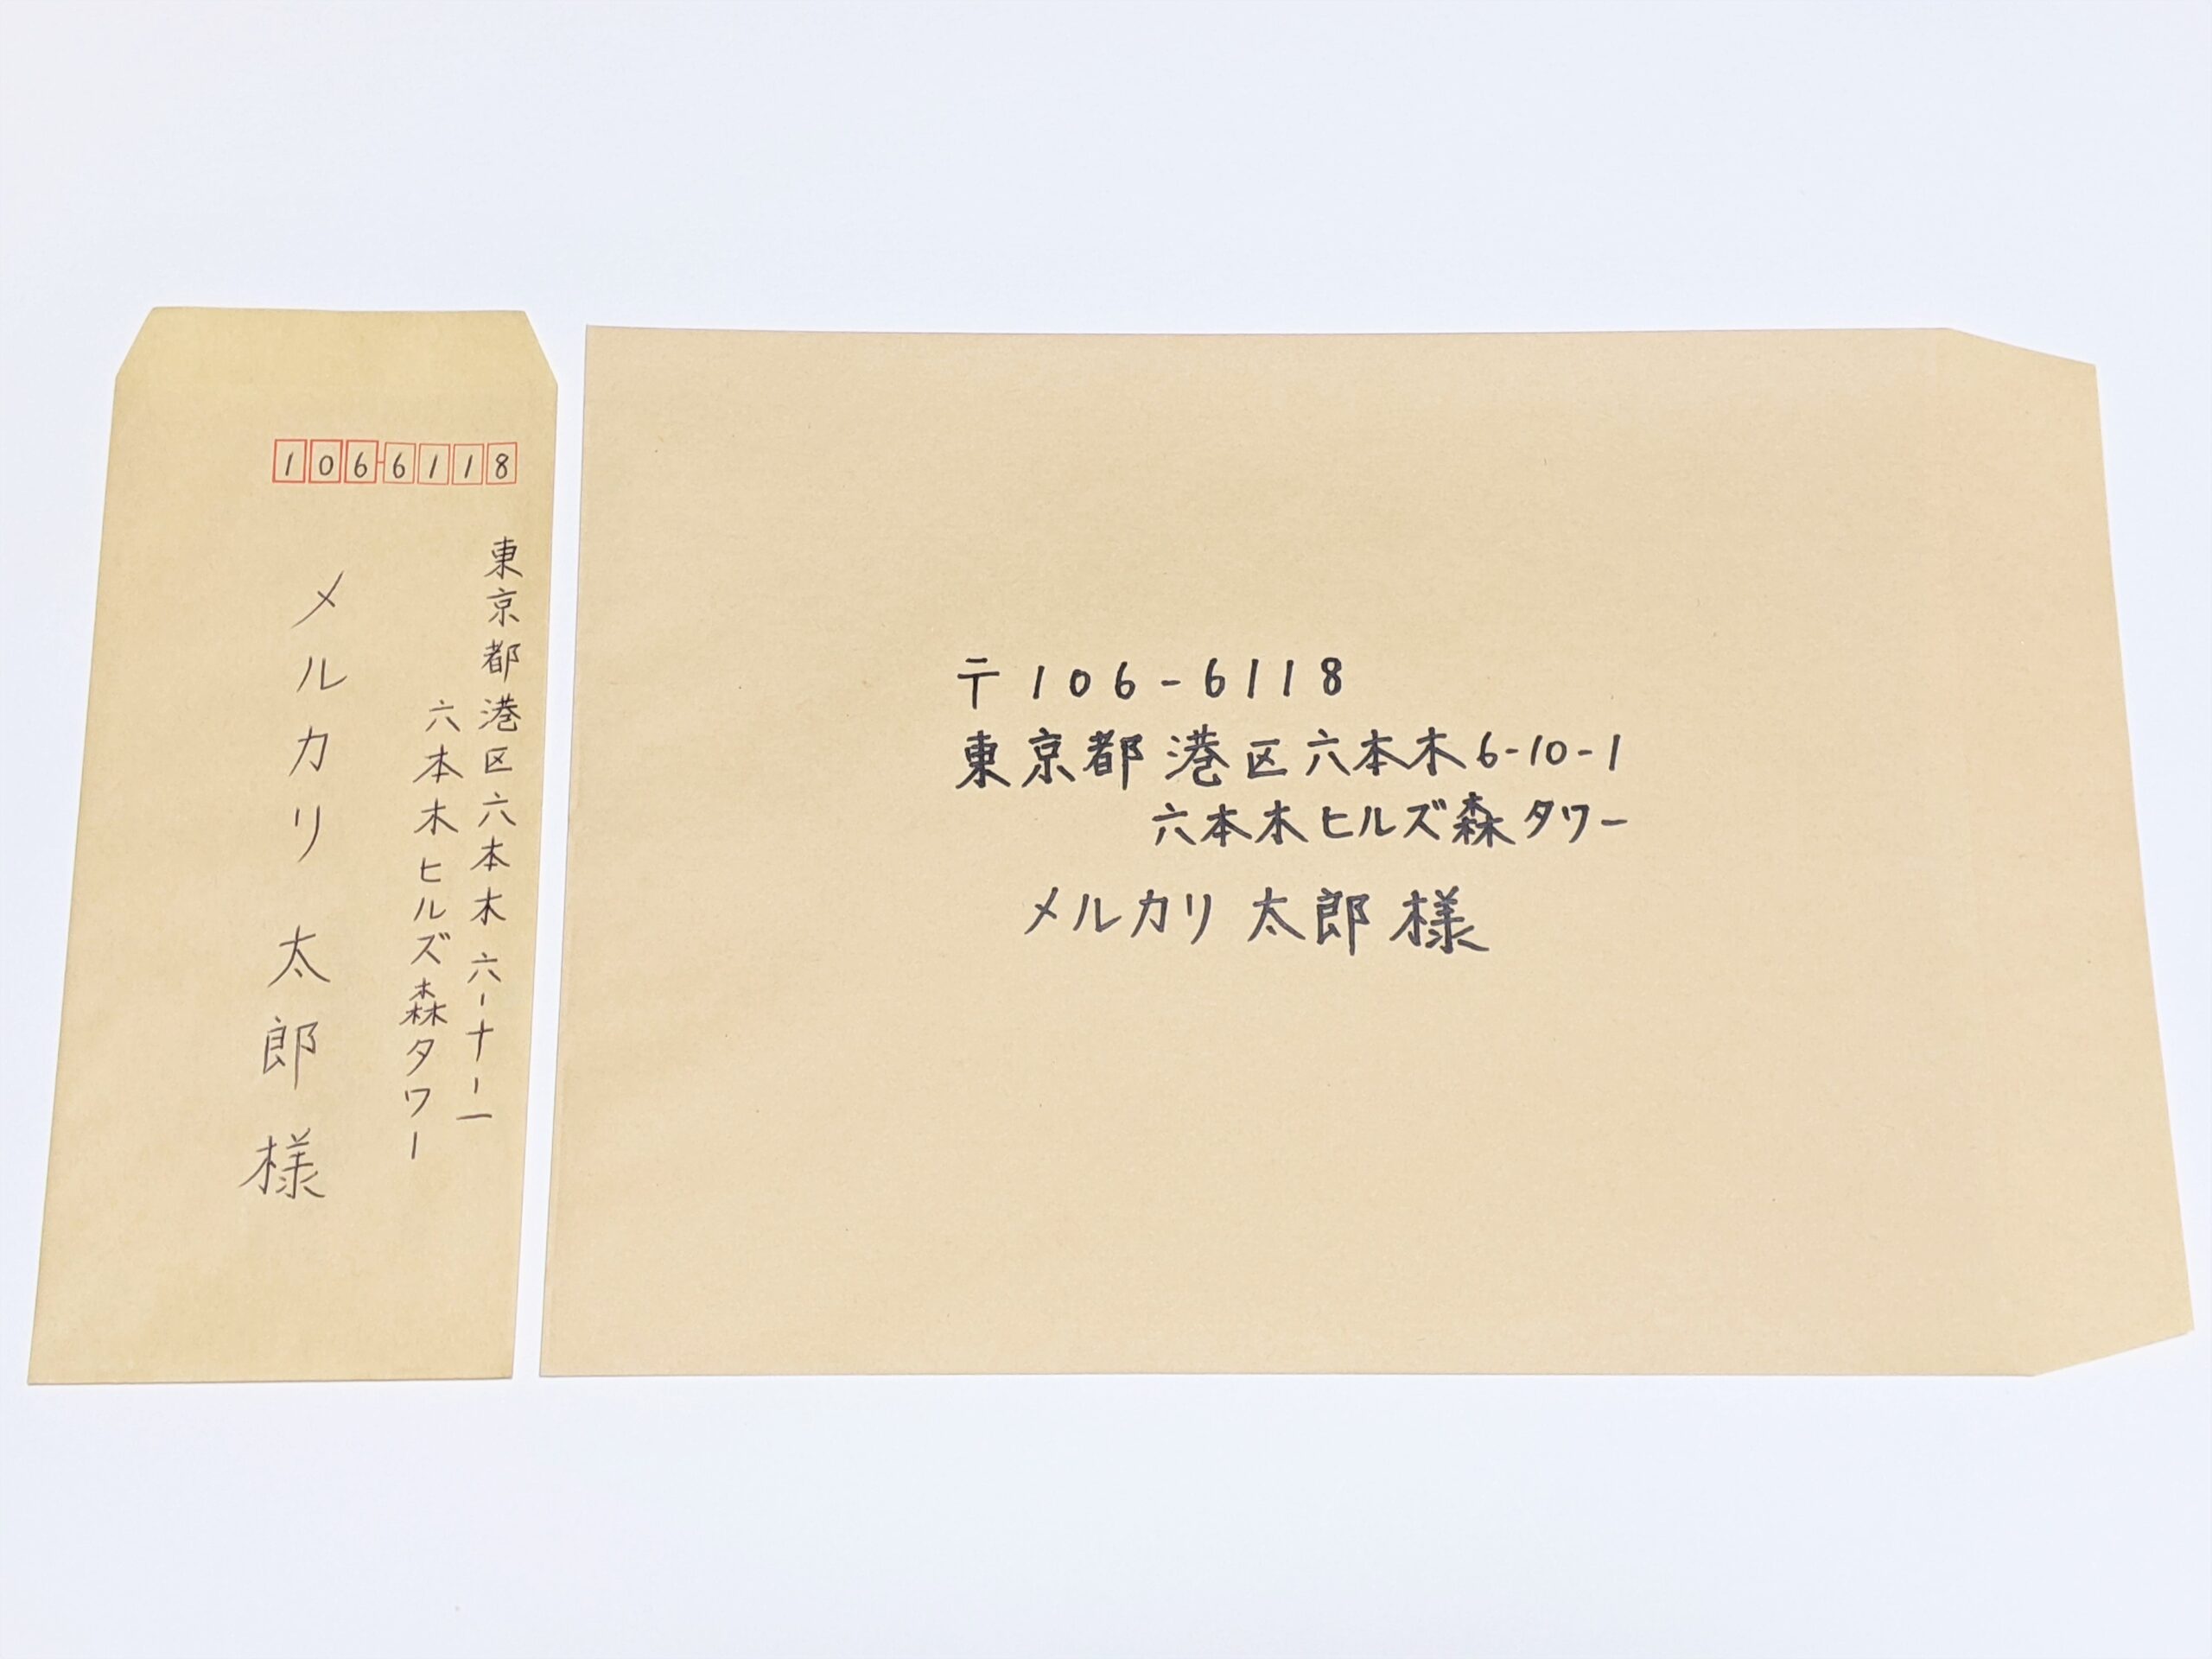 1066118
東京都港区六本木六-十-一
六本木ヒルズ森タワー
メルカリ 太郎 様
〒106-6118
東京都港区六本木6-10-1
六本木ヒルズ森タワー
メルカリ 太郎 様